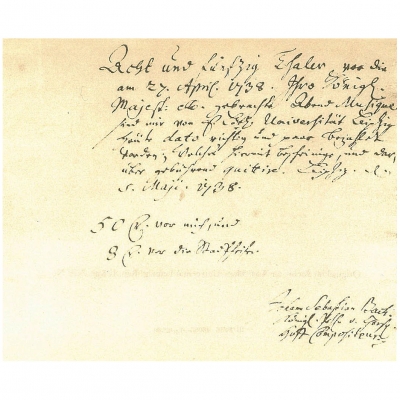 Acht und funfzig Thaler, vor die
am 27. April. 1738. Ihro Königl.
Majest. etc. gebrachte Abend Musique
sind mir von E. Löbl. Universität Leipzig
heute dato richtig und paar bezahlet
worden; Welches hiermit bescheinige, und dar-
über gebührend quittire. Leipzig. d.
5. Maji. 1738.
50 rl. vor mich, und
8 rl. vor die Stadtpfeifer.
Johann Sebastian Bach.
Königl. Pohl. u. Churf. 
Hoff Compositeur